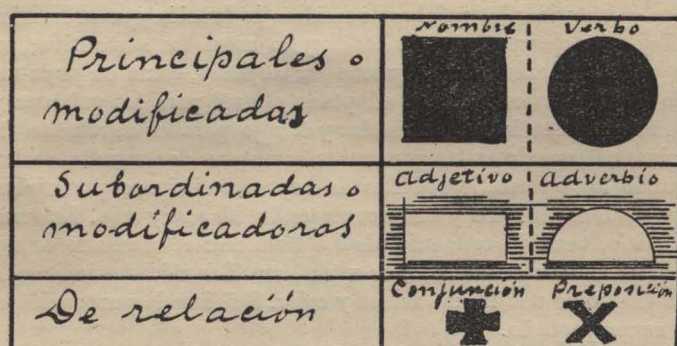 Principales o
modificadas
Nombre
Verbo
Subordinadas o
modificadoras
Adjetivo
Adverbio
De relación
Conjunción
Preposición